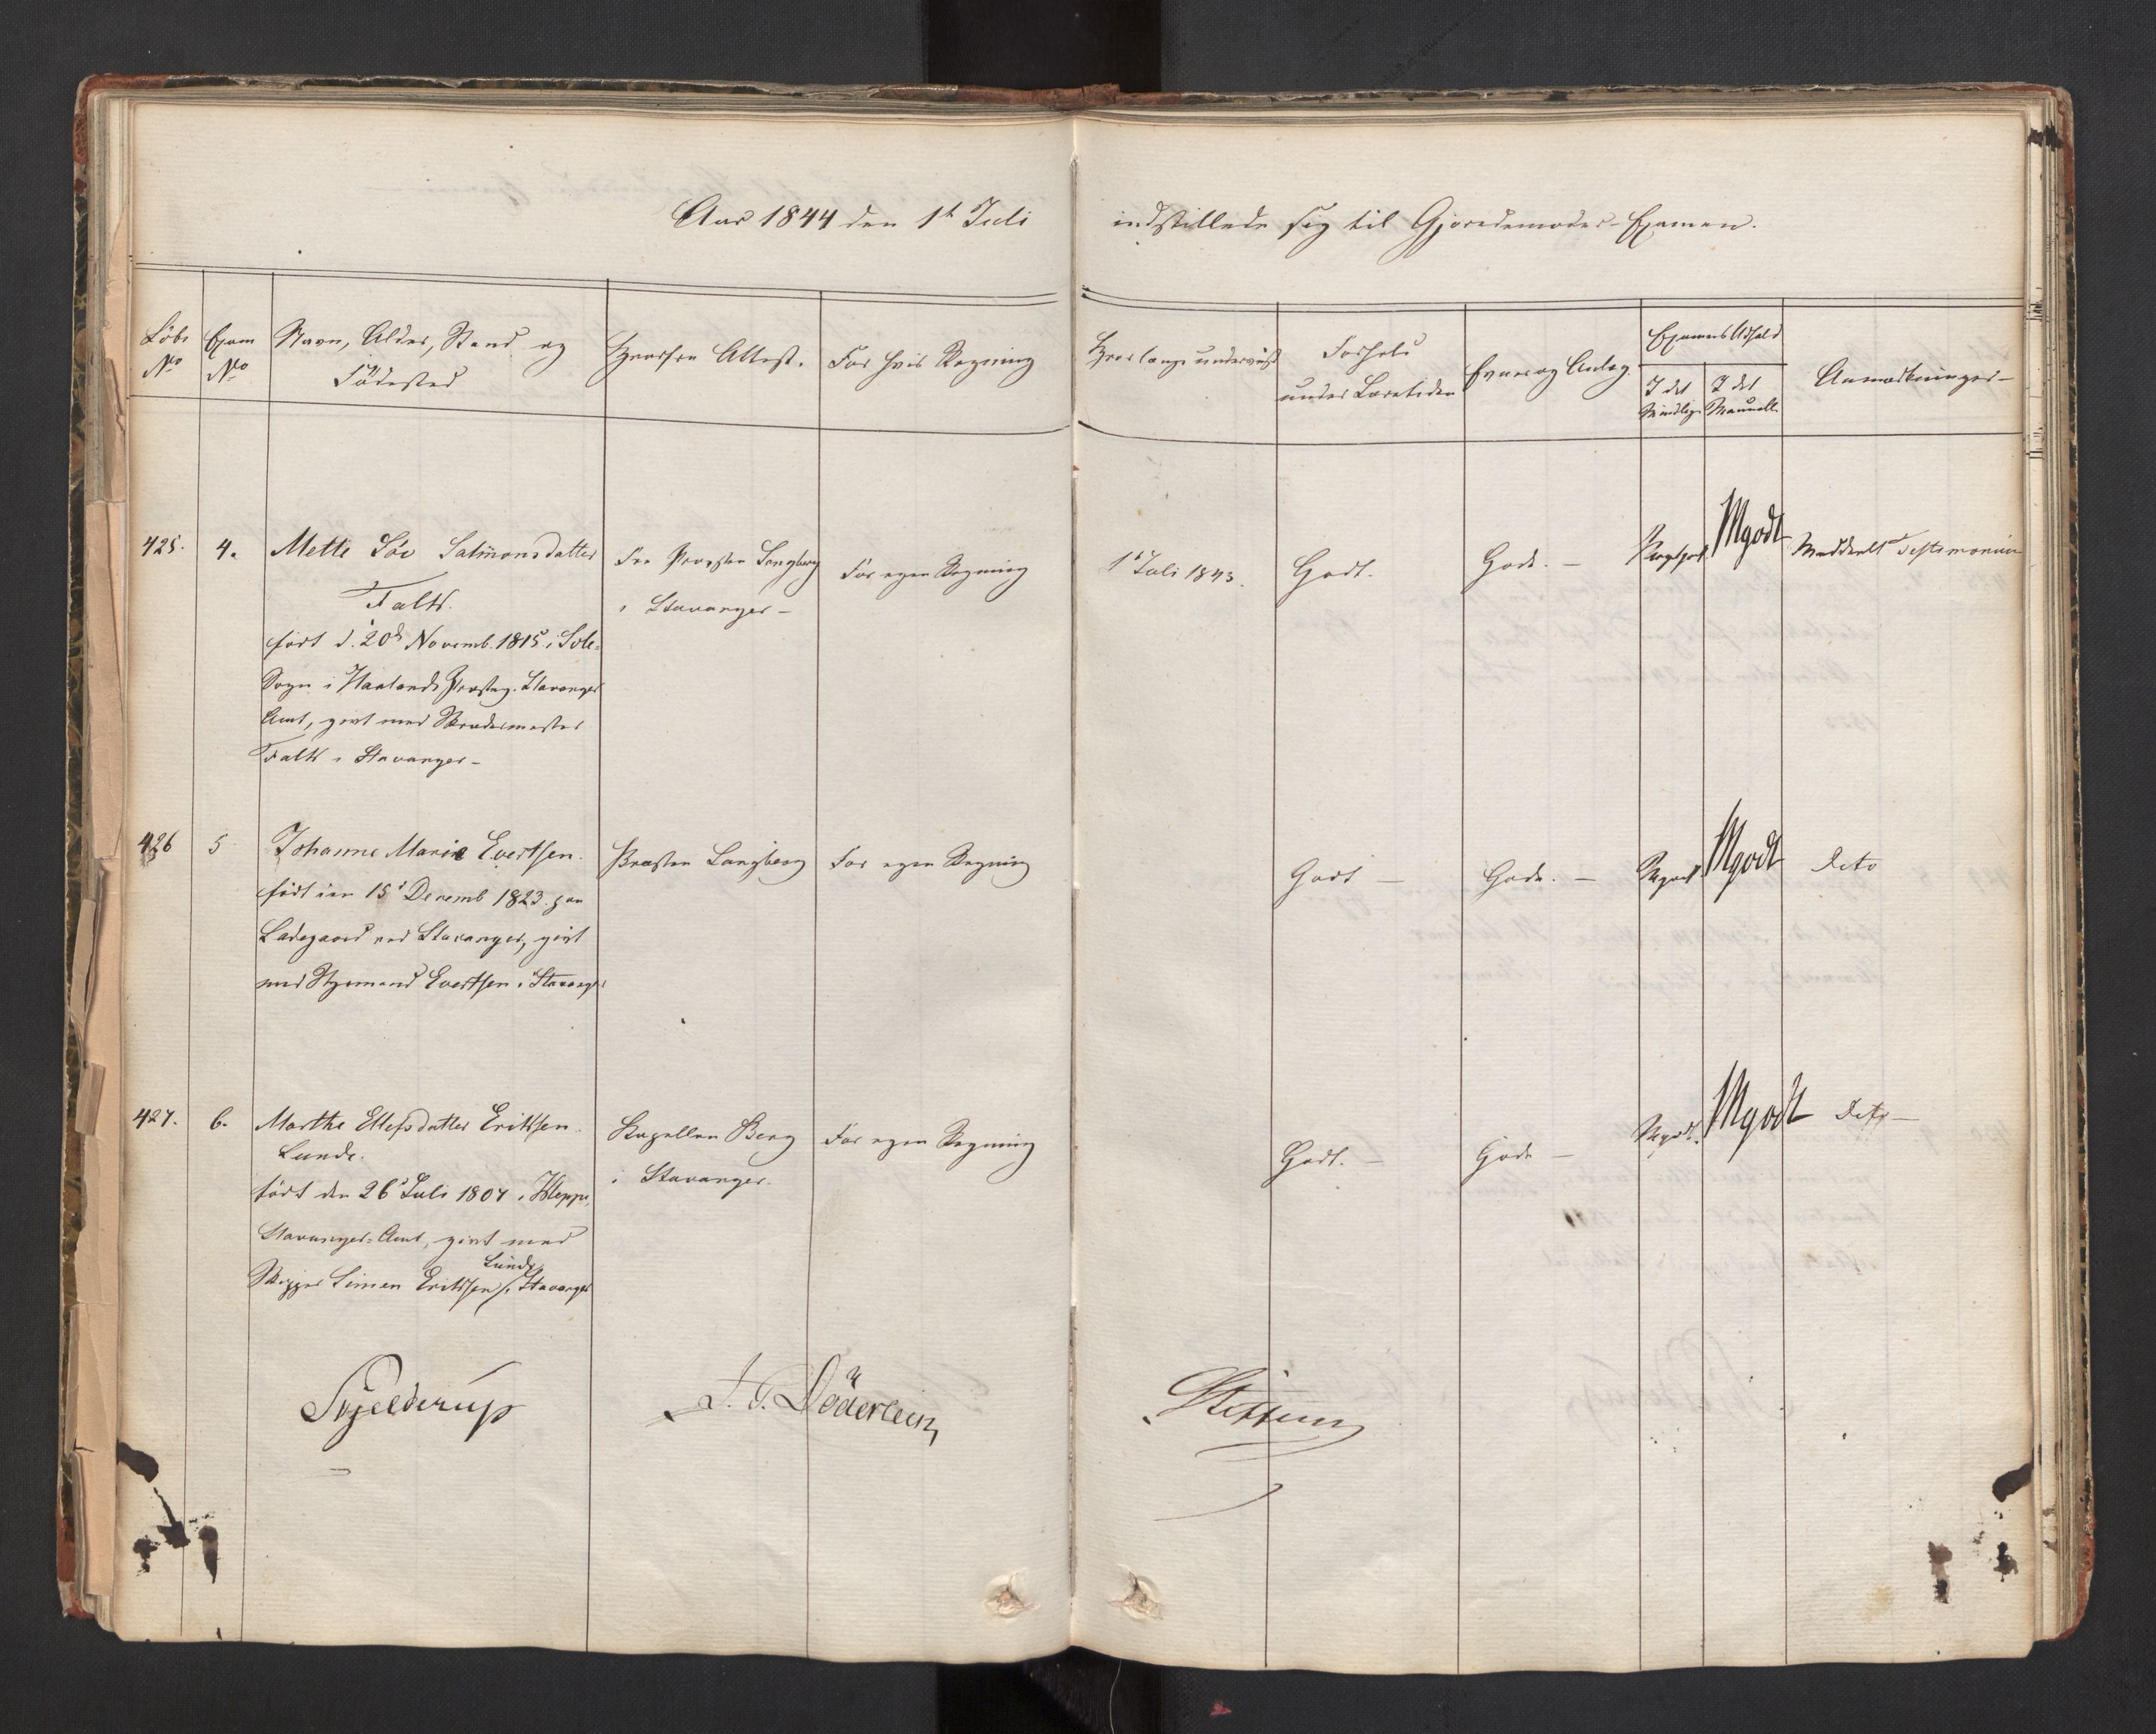 Aar 1844 den 1ste Juli indstillede sig til Gjordemoder-Examen.
Löbe No
Exam No
Navn, Alder, Stand og Födested
Hvorfra Attest.
For hvis Regning
Hvor længe underviist
Forhold under Læretiden
Evner og Anlæg.
Examens Udfald
I det Mundtlige
I det Manuelle
Anmærkninger
425. 4. Mette Salmonsdatter
Falk.
födt d. 20de Novemb. 1815 i Sole
Sogn i Haalands Præsteg. Stavanger
Amt, givt med Skrædermester
Falk i Stavanger
Fra Provsten Langberg
i Stavanger
For egen Regning
1ste Juli 1843.
Godt.
Gode.
Mgodt
Meddeelt Testimonium
426 5 Johanne Marie Evertsen.
födt den 15de Decemb 1823 paa
Ladegaard ved Stavanger, givt
med Styrmand Evertsen i Stavanger
Provsten Langberg
For egen Regning
Godt
Gode.
Mgodt
Mgodt
dito
427. 6. Marthe Ellefsdatter Eriksen
Lunde.
födt den 26de Juli 1807 i Kleppe,
Stavanger-Amt, givt med
Skipper Simen Eriksen Lunde i Stavanger
Kapellan Berg
i Stavanger.
For egen Regning
Godt.
Gode
Mgodt.
Mgodt
dito
Schjelderup
J. C. Döderlein
Steffens